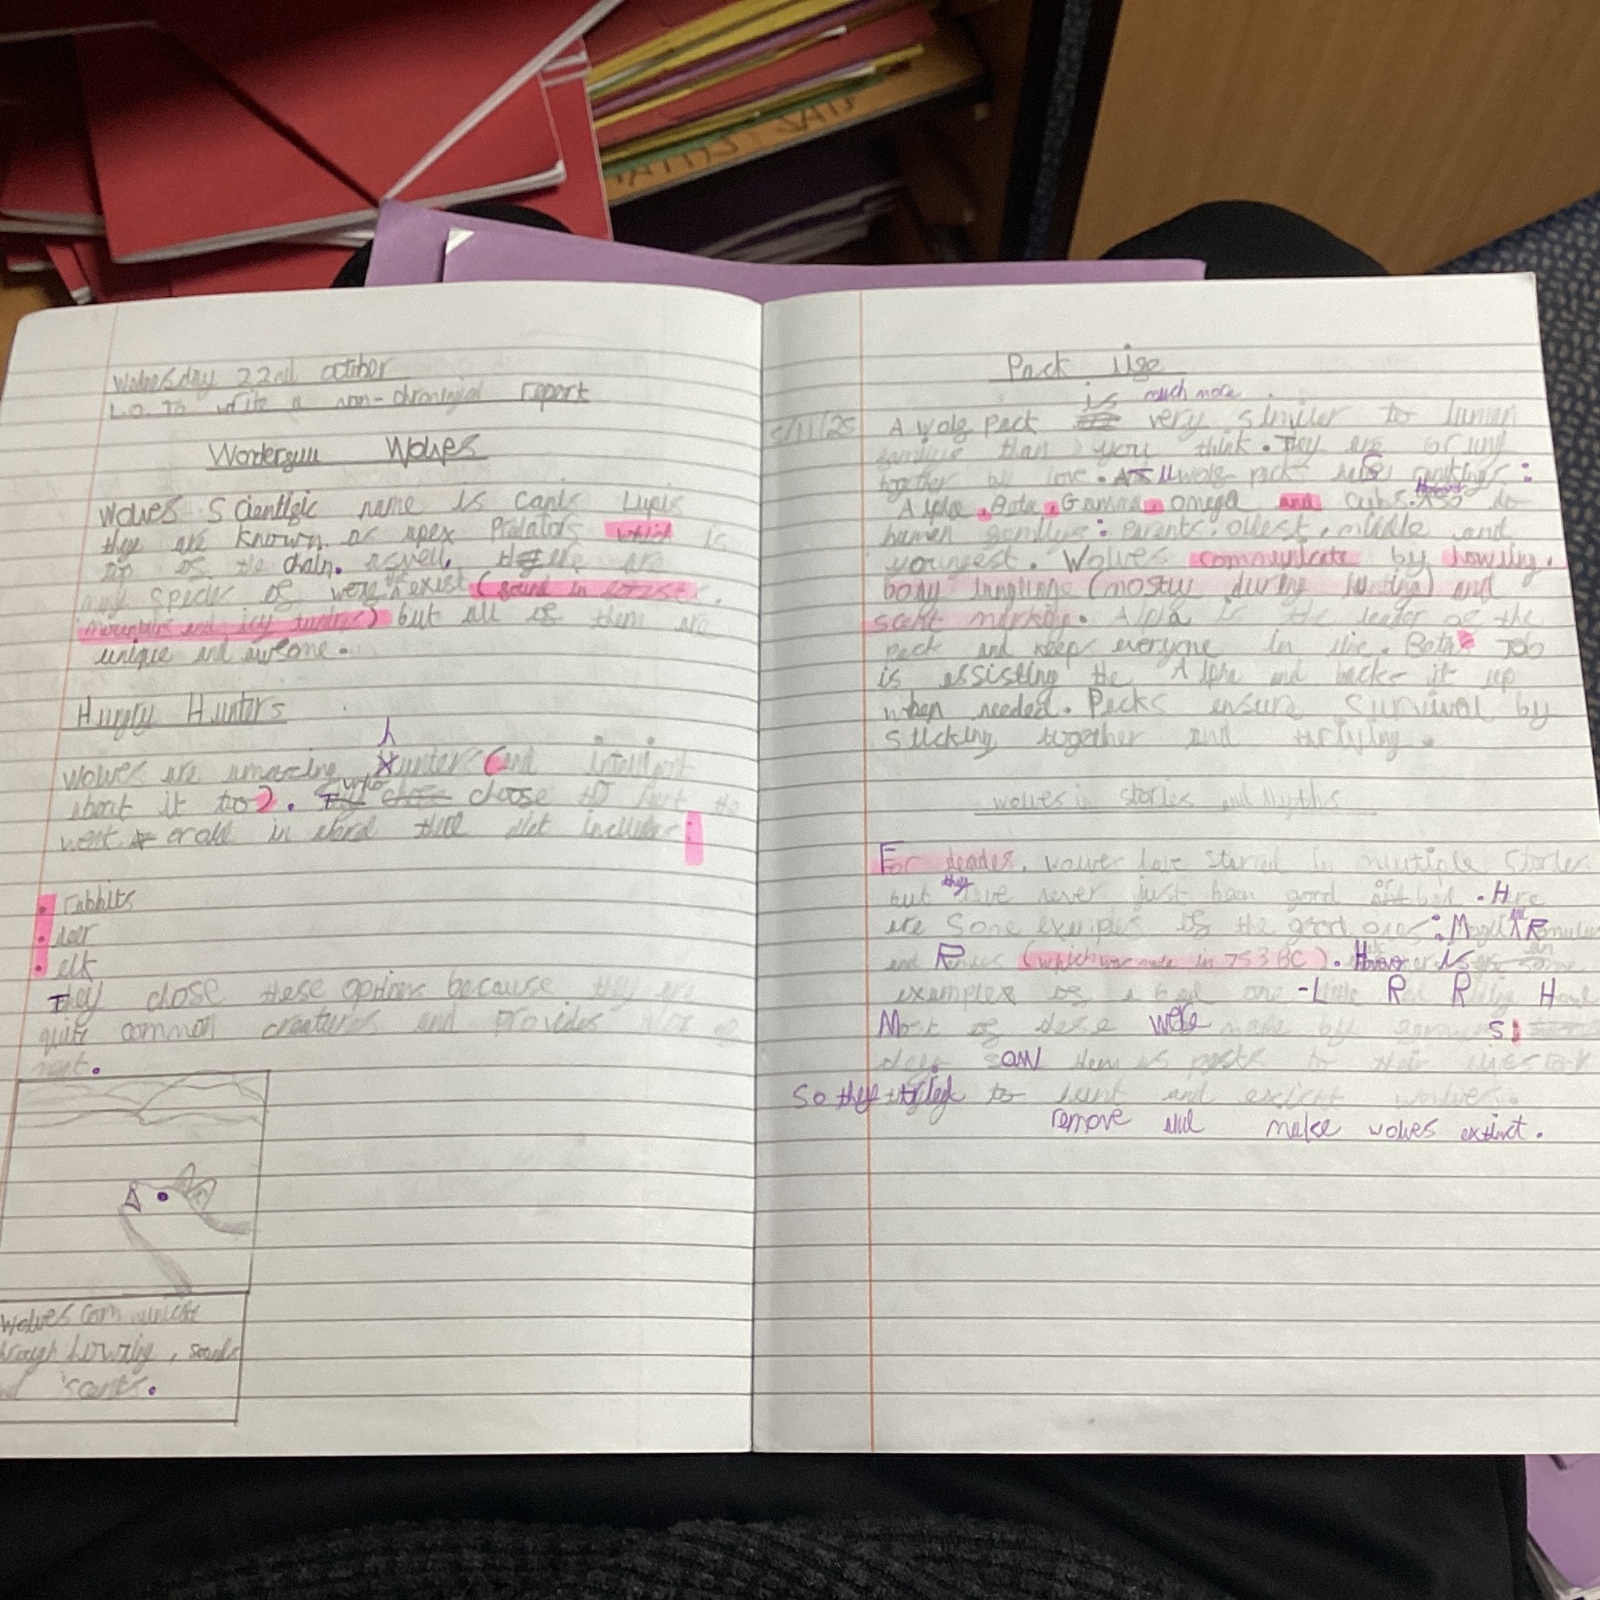 Wednesday 22nd october
L.O. To write a non-chronigal report
Wonderfull Wolves
Wolves Scientific name is Canis Lupis
they are known as apex Pradators which is
top of the chain. aswell, there are
many species of were exist (found in forests,
mountains and icy tundras) but all of them are
unique and awsome.
Hungry Hunters
h
wolves are amazing hunters (and intelligent
about it too). who choose to hunt the
weak or old in herd their diet includes:
• rabbits
• deer
• elk
They chose these options because they are
quite common creatures and provides alot of
meat.
wolves communicate
through howling, sounds
and scents.
Pack life
is much more
5/11/25 A wolf pack very similer to human
families than you think. They are bound
together by love. All wolf packs have rankings:
Alpha, Beta, Gamma, omega and Cubs. Also do
human families: Parents, oldest, middle and
youngest. Wolves communicate by howling,
body language (mostly during hunting) and
scent marking. Alpha is the leader of the
pack and keeps everyone in line. Beta's job
is assisting the Alpha and backs it up
when needed. Packs ensure Survival by
Sticking together and
wolves in stories and Myths
For decades, wolves have starred in multiple stories
but they have never just been good or bad. Here
are some examples of the good ones: Mogli, Romulus
and Remus (which was made in 753 BC). However
examples of a bad one - Little Red Riding Hood
Most of these were made by
they saw them as pests to their livestock
so they tried to hunt and extinct wolves.
remove and make wolves extinct.